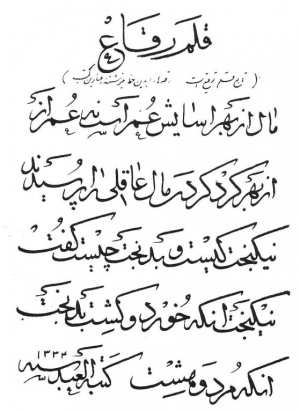 قلم رقاع
(تابع قلم توقیعات رقعه‌ها را بدین خط می‌نوشتند
مال از بهر آسایش عمر است نه عمر از
از بهر گرد کردن مال عاقلی را پرسیدند
نیکبخت کیست و بدبخت چیست گفت
نیکبخت آنکه خورد و کشت بدبخت
آنکه مرد و هشت کتبه العبد
۱۳۳۴